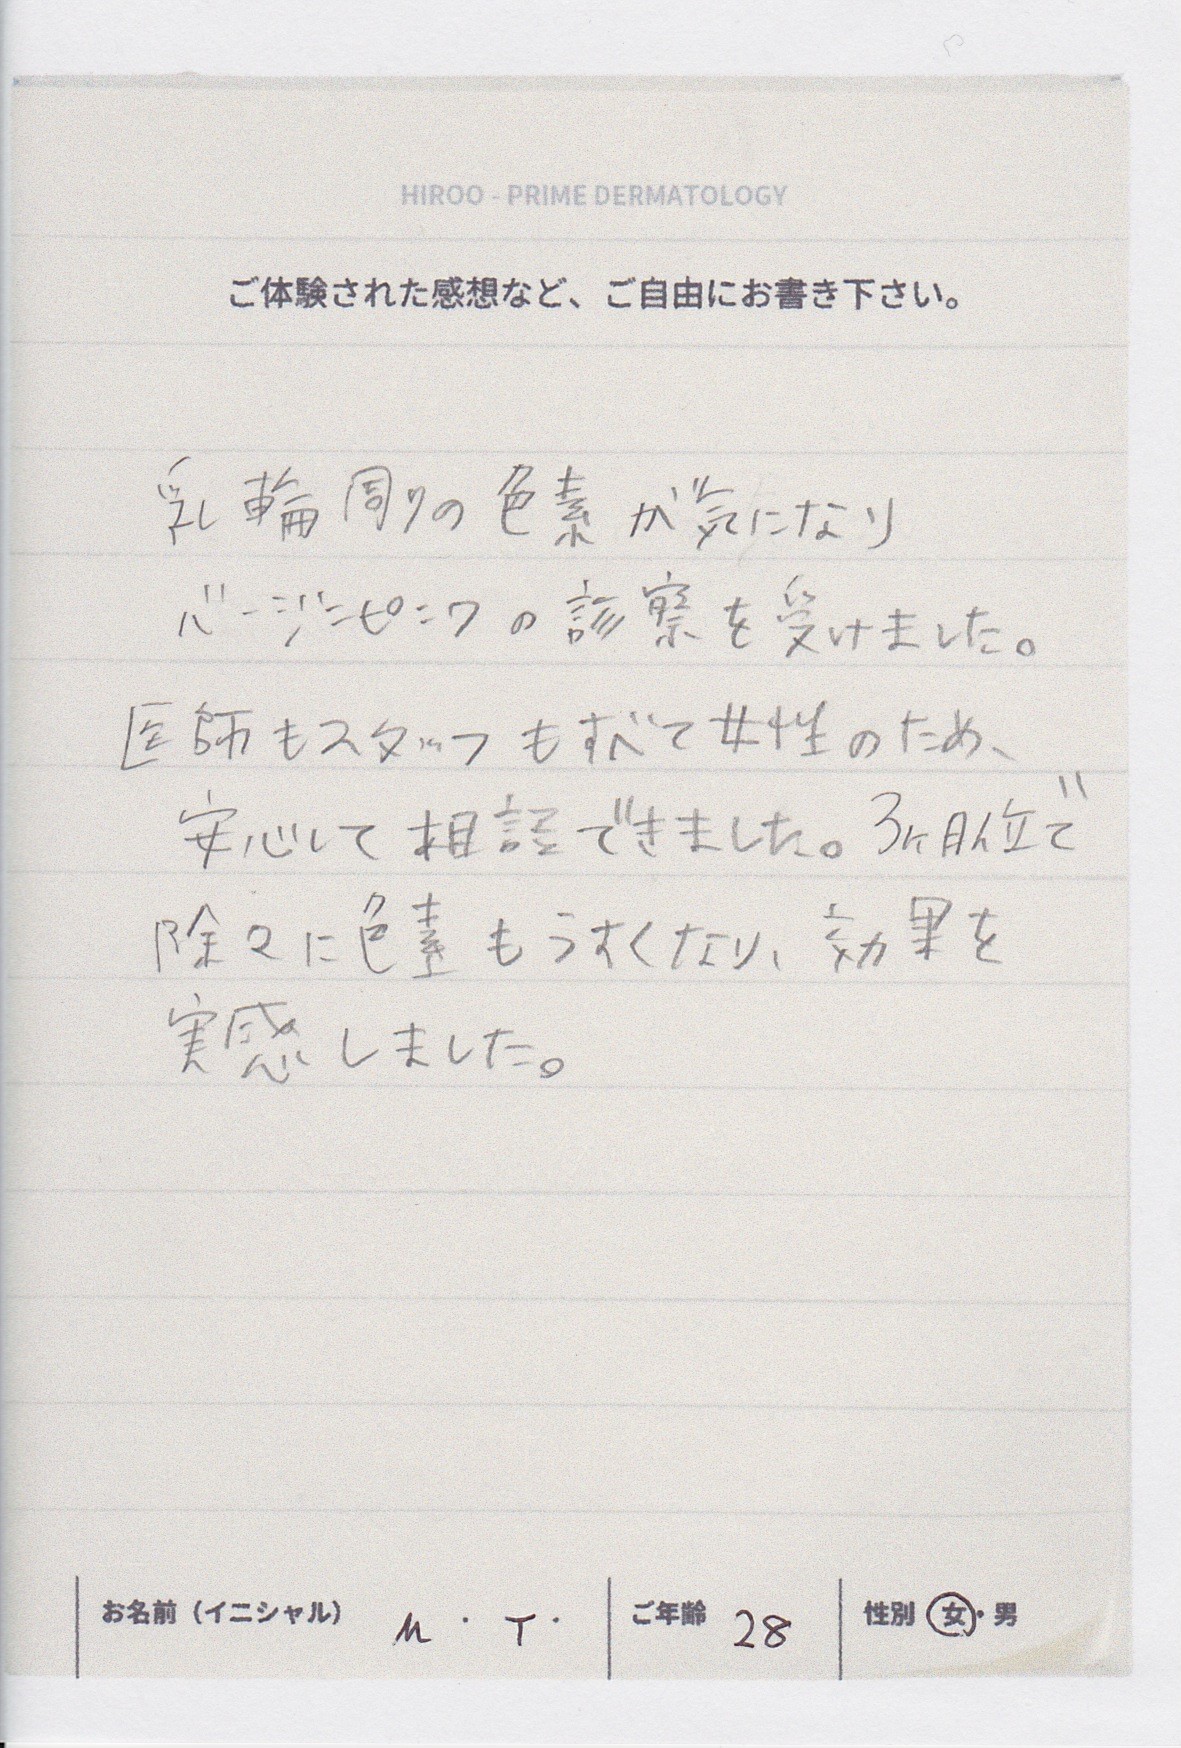 HIROO - PRIME DERMATOLOGY
ご体験された感想など、ご自由にお書き下さい。
乳輪周りの色素が気になり
バージンピンクの診察を受けました。
医師もスタッフもすべて女性のため、
安心して相談できました。3ヶ月位で
除々に色素もうすくなり、効果を
実感しました。
お名前（イニシャル） M・T・ ご年齢 28 性別 女・男